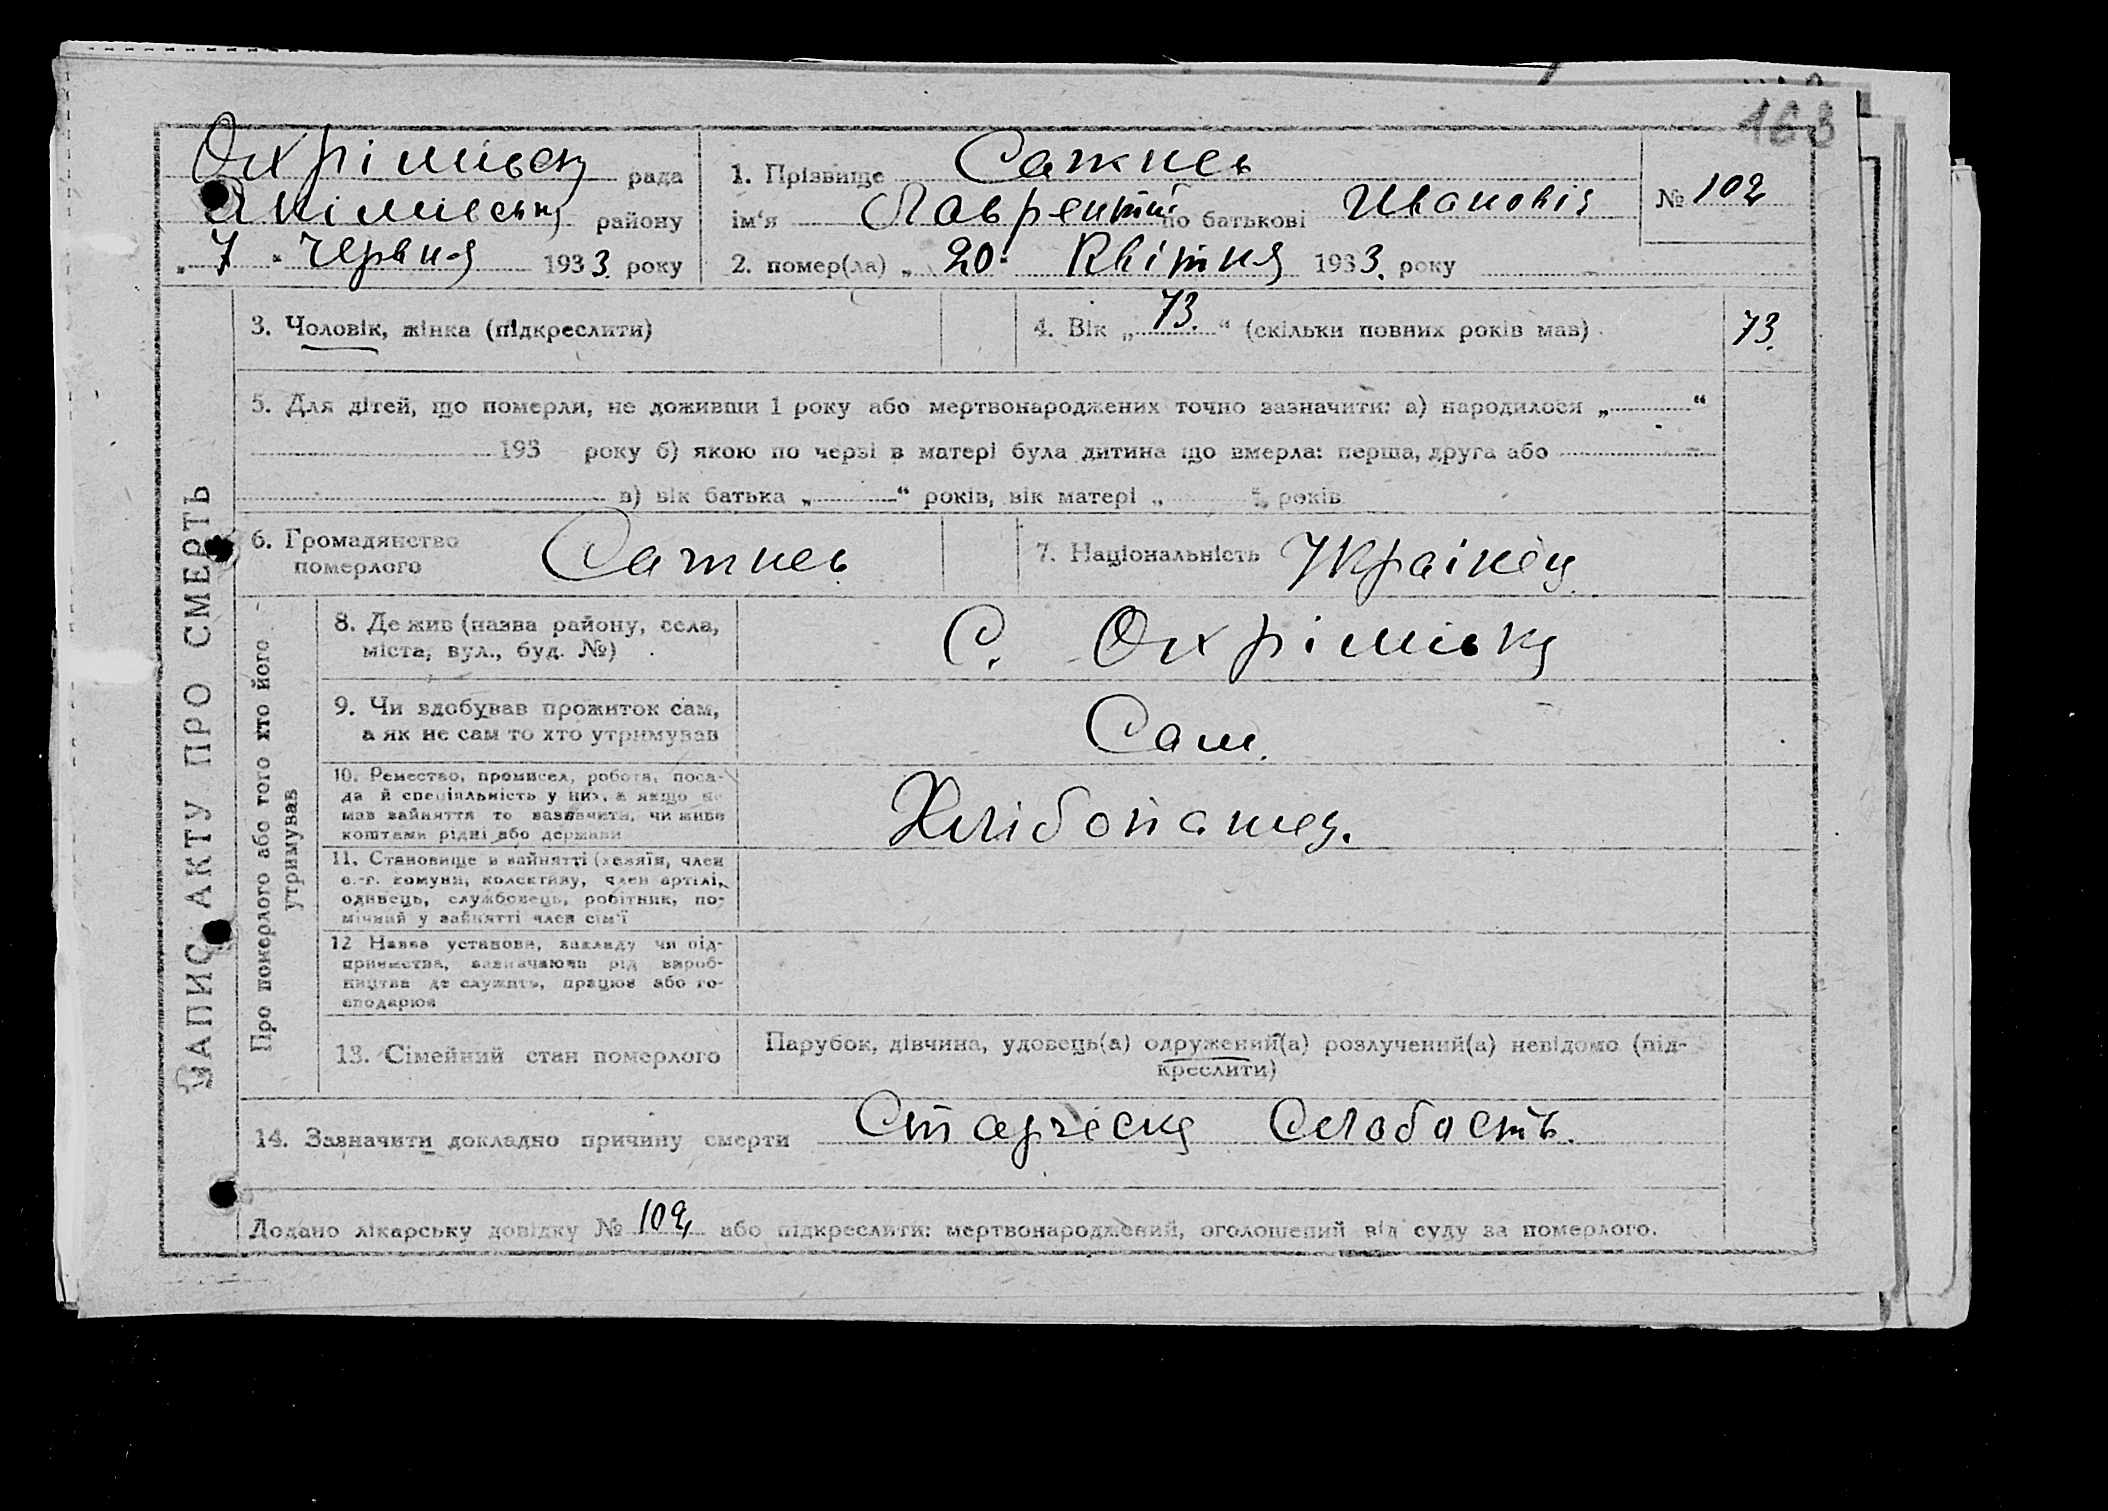 163
Охрімівськ рада
Якімівськ району
„ 7 “ червня 1933. року
1. Прізвище Сажнев
ім‘я Лаврентій по батькові Иванович
№ 102
2. помер(ла) „ 20 “ Квітня 1933. року
ЗАПИС АКТУ ПРО СМЕРТЬ
3. Чоловік, жінка (підкреслити)
4. Вік „ 73. “ (скільки повних років мав)
73.
5. Для дітей, що померли, не доживши 1 року або мертвонароджених точно зазначити: а) народилося „ “
193 року б) якою по черзі в матері була дитина що вмерла: перша, друга або
в) вік батька „ “ років, вік матері „ “ років
6. Громадянство
померлого
Сажнев
7. Національність Украінец
Про померлого або того хто його
утримував
8. Де жив (назва району, села,
міста, вул., буд. №)
С. Охрімівка
9. Чи здобував прожиток сам,
а як не сам то хто утримував
Сам.
10. Ремество, промисел, робота, поса-
да й спеціяльність у них, а якщо не
мав зайняття то зазначити, чи живе
коштами рідні або держави
Хлібопашец.
11. Становище в зайнятті (хазяїн, член
с.-г. комуни, колективу, член артілі,
одинець, службовець, робітник, по-
мічний у зайнятті член сім‘ї
12 Назва установи, закладу чи під-
приємства, зазначаючи рід вироб-
ництва де служить, працює або го-
сподарює
13. Сімейний стан померлого
Парубок, дівчина, удовець(а) одружений(а) розлучений(а) невідомо (під-
креслити)
14. Зазначити докладно причину смерти Старческа Слабость.
Додано лікарську довідку № 102 або підкреслити: мертвонароджений, оголошений від суду за померлого.